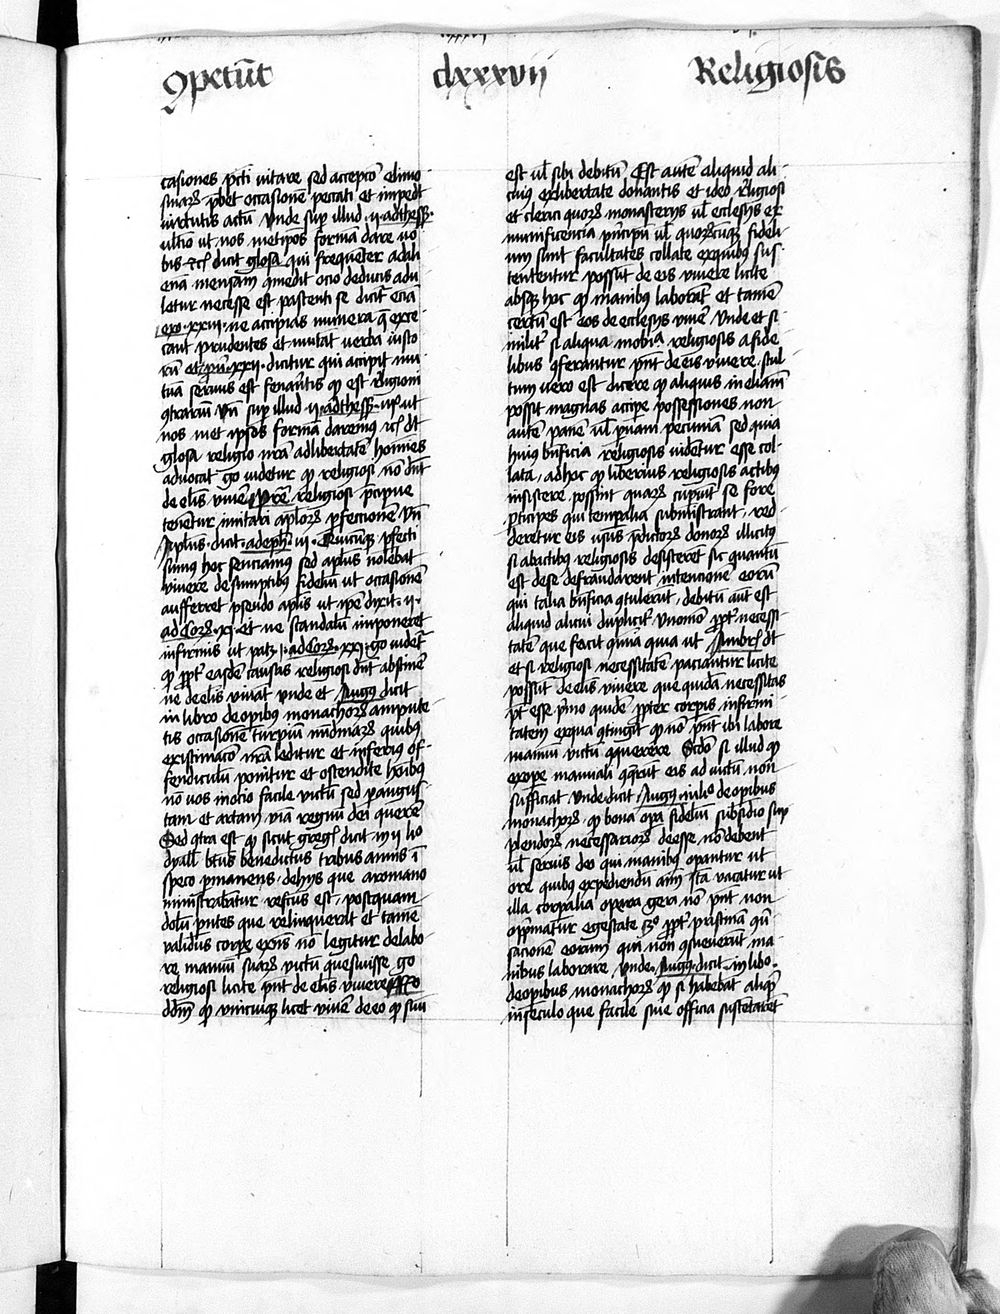 ꝯpetūt clxxxvii Religiosis
casiones pcti vitare sed acceptō elimo
sinarꝝ p̄bet occasionē peccati et impedit
virtutis actū Unde sup illud ·ij· ad thess·
ultīo ut nos metip̄os formā dare vo
bis ⁊c̄ dicit glosa qui frequēter ad ali
enā mensam ꝯuenit ocio deditus adu
letur necesse est pascenti se Dicit̄ eciā
exo· xxiij· ne accipias munera q̄ exce
cant prudentes et mutāt verba iusto
rū et puͥ· xxij· dicitur qui accipit mu
tuū servus est fenātis qͦ est religioni
ꝯtrariū Uñ sup illud ·ij· ad thess· iijͦ ut
nos met ipsos formā daremus ⁊c̄ dt̄
glosa religio nr̄a ad libertatē hoīnes
advocat gͦ videtur qͦ religiosi nō dn̄t
de elīs vivē̄ Pret̄e religiosi p̄cipue
tenētur imitari apl̄orꝝ pfectionē Uñ
Apl̄us· dicit· ad ph̄· iij· Quicūqꝫ pfecti
sumus hoc senciamus sed apl̄us nolebat
vivere de sumptibꝯ fideliū ut occasionē
aufferret pseudo apl̄is ut ip̄e dixit· ij·
ad Corꝝ· xi· et ne scandalū imponeret
infirmis ut patꝫ ·j· ad Corꝝ· gͦ videt̄
qͦ ppt̄ easdē causas religiosi dn̄t abstinē
ne de elīs vivāt unde et Augꝯ dicit
in libro de opibꝯ monachorꝝ ampute
tis occasionē turpiū nūdinarꝝ quibꝯ
existimacō vr̄a leditur et infirmis of
fendiculū ponitur et ostendite hoībꝯ
nō vos in ocio facile victū sed p angus
tam et artam viā regnū dei querē̄
Sed ꝯtra est qͦ sicut gregꝯ dicit in ij lіo
dyall̄ btūs benedictus tribus annis ī
speco pmanens· de hys que a romano
ministrabātur refectus est· postquam
domū pn̄tes que relinquerat et tamē
validus corpe exn̄s nō legitur de labo
re manuū suarꝝ victū quesivisse gͦ
religiosi licite pn̄t de elīs vivere Rͦo
dōm qͦ unicuiqꝫ licet vivē̄ de eo qͦ suū
est ul̄ sibi debitū Est autē aliquid ali
cuiꝯ ex libertate donantis et ideo religiosi
et clerici quorꝝ monasterys ul̄ ecclesys ex
munificencia principū ul̄ quorūcūqꝫ fideli
um sunt facultates collate ex quibꝯ sus
tententur possūt de eis vivere licite
absqꝫ hoc qͦ manibꝯ laborāt et tamē
certū est eos de elīs vivē̄ Unde et si
militer si aliqua mobīa religiosis a fide
libus ꝯferantur pn̄t de eis vivere· stul
tum vero est dicere qͦ aliquis in eliām
possit magnas accipe possessiones non
autē panē ul̄ pvam pecuniā sed quia
huiꝯ bn̄ficia religiosis vidētur esse col
lata· ad hoc qͦ liberius religiosis actibꝯ
insistere possint quarꝝ cupiūt se fore
pticipes qui tempalia subministrant· red
deretur eis usus pdictorꝝ donorꝝ illicitus
si ab actibꝯ religiosis desisteret sic quantū
est de se defraudarent intencionē eorū
qui talia bn̄ficia ꝯtulerūt· debitū aut̄ est
aliquid alicui duplicit̄ Uno mō ppt̄ necessi
tatē que facit omīa quia ut Ambrꝯ dt̄
et si religiosi necessitatē paciantur licite
possūt de elīs vivere que quidā necessitas
pt̄ esse p̄mo quidē pp̄ter corpis infirmi
tatem ex qua ꝯtingit qͦ nō pn̄t ibi labore
manuū victū ꝯquerere Scd̄o si illud qͦ
ex ope manuali ꝯq̄rūt eis ad victū non
sufficiat· unde dicit· Augꝯ in lіo de opibus
monachorꝝ· qͦ bona opa fideliū subsidio sup
plendorꝝ necessariorꝝ deesse nō debent
ul̄ servis dei qui manibꝯ opantur ut
ore quibꝯ expediendū anī ita vacatur ut
illa corpalia opera geri nō pn̄t non
opp̄mātur egestate 3ͦ ppt̄ pristinā ꝯuer
sacionē eorum qui non ꝯsueverūt ma
nibus laborare· unde· Augꝯ dicit· in libo·
de opibus monachorꝝ qͦ si habebāt aliqͥd
in seculo que facile sine officia sustētaret